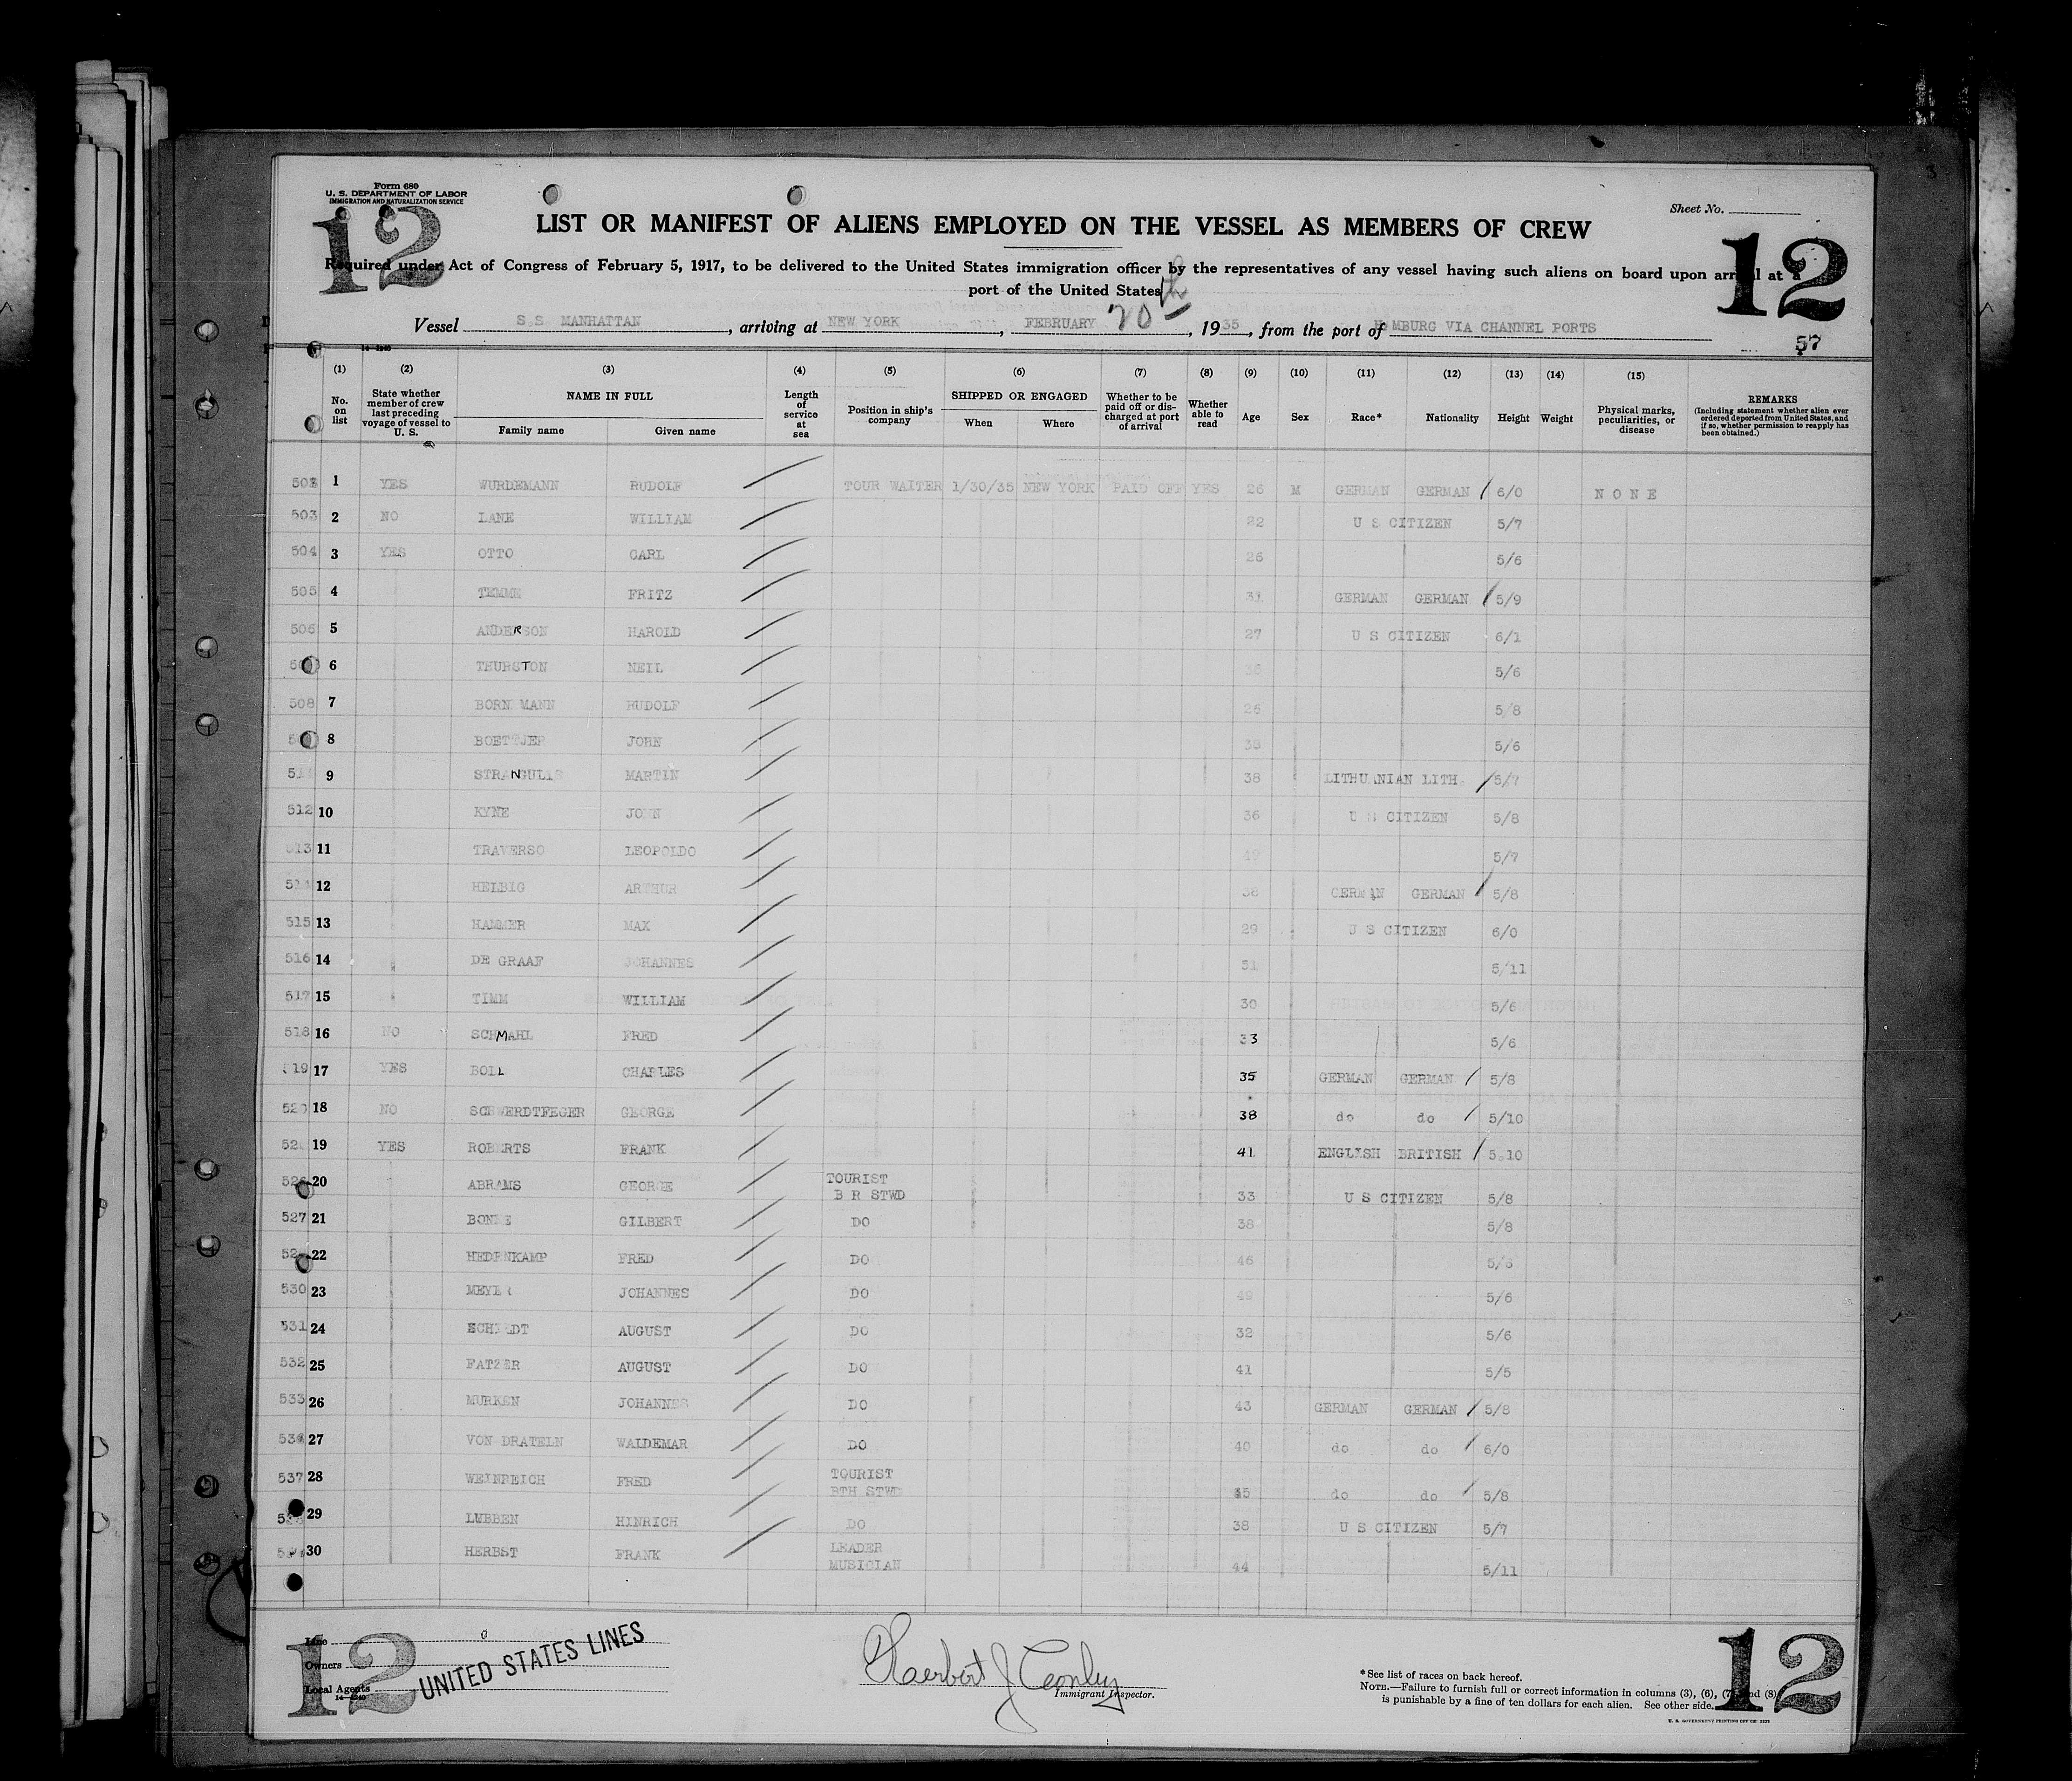 Form 680
U. S. DEPARTMENT OF LABOR
IMMIGRATION AND NATURALIZATION SERVICE
12
12
Sheet No.
LIST OR MANIFEST OF ALIENS EMPLOYED ON THE VESSEL AS MEMBERS OF CREW
Required under Act of Congress of February 5, 1917, to be delivered to the United States immigration officer by the representatives of any vessel having such aliens on board upon arrival at a
port of the United States
Vessel S.S. MANHATTAN, arriving at NEW YORK, FEBRUARY 20th, 1935, from the port of HAMBURG VIA CHANNEL PORTS
57
14-1240
(1) (2) (3) (4) (5) (6) (7) (8) (9) (10) (11) (12) (13) (14) (15)
No. on list State whether member of crew last preceding voyage of vessel to U. S. NAME IN FULL Family name Given name Length of service at sea Position in ship's company SHIPPED OR ENGAGED When Where Whether to be paid off or discharged at port of arrival Whether able to read Age Sex Race* Nationality Height Weight Physical marks, peculiarities, or disease REMARKS (Including statement whether alien ever ordered deported from United States, and if so, whether permission to reapply has been obtained.)
1 YES WURDEMANN RUDOLF TOUR WAITER 1/30/35 NEW YORK PAID OFF YES 26 M GERMAN GERMAN 6/0 NONE
503 2 NO LANE WILLIAM 22 U S CITIZEN 5/7
504 3 YES OTTO CARL 26 5/6
505 4 TEMME FRITZ 31 GERMAN GERMAN 5/9
506 5 ANDERSON HAROLD 27 U S CITIZEN 6/1
6 THURSTON NEIL 5/6
508 7 BORNEMANN RUDOLF 26 5/8
8 BOETTJER JOHN 38 5/6
9 STRANGULIS MARTIN 38 LITHUANIAN LITH. 5/7
512 10 KYNE JOHN 36 U S CITIZEN 5/8
513 11 TRAVERSO LEOPOLDO 49 5/7
514 12 HELBIG ARTHUR 38 GERMAN GERMAN 5/8
515 13 HAMMER MAX 29 U S CITIZEN 6/0
516 14 DE GRAAF JOHANNES 51 5/11
517 15 TIMM WILLIAM 30 5/6
518 16 NO SCHMAHL FRED 33 5/6
519 17 YES BOLL CHARLES 35 GERMAN GERMAN 5/8
520 18 NO SCHWERDTFEGER GEORGE 38 do do 5/10
19 YES ROBERTS FRANK 41 ENGLISH BRITISH 5.10
20 ABRAMS GEORGE TOURIST B R STWD 33 U S CITIZEN 5/8
527 21 GILBERT DO 38 5/8
22 HEDENKAMP FRED DO 46
530 23 MEYER JOHANNES DO 49 5/6
531 24 SCHMIDT AUGUST DO 32 5/6
532 25 FATZER AUGUST DO 41 5/5
533 26 MURKEN JOHANNES DO 43 GERMAN GERMAN 5/8
27 VON DRATELN WALDEMAR DO 40 do do 6/0
537 28 WEINREICH FRED TOURIST BTH STWD 35 do do 5/8
29 LUBBEN HINRICH DO 38 U S CITIZEN 5/7
30 HERBST FRANK LEADER MUSICIAN 44 5/11
12
12
Line
Owners
Local Agents
14-1240
UNITED STATES LINES
Immigrant Inspector.
*See list of races on back hereof.
NOTE.—Failure to furnish full or correct information in columns (3), (6), (7) and (8)
is punishable by a fine of ten dollars for each alien. See other side.
U. S. GOVERNMENT PRINTING OFFICE: